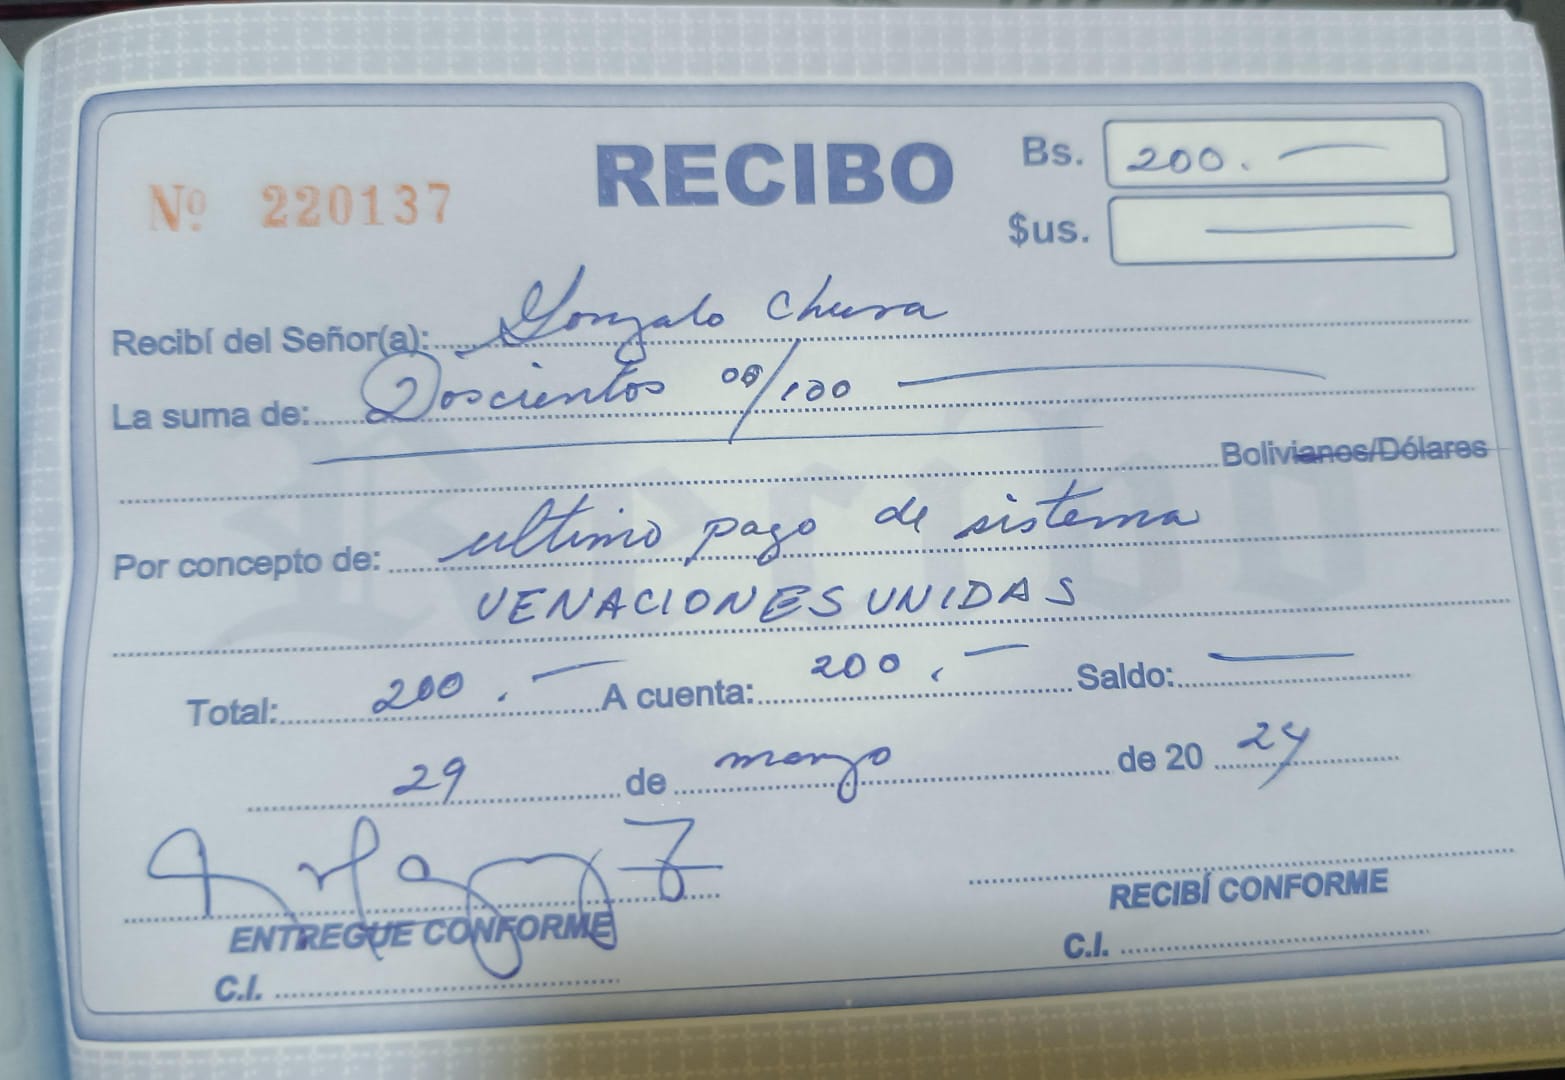 RECIBO
Nº 220137
Bs. 200.—
$us. —
Recibí del Señor(a): Gonzalo Chura
La suma de: Doscientos 00/100
Bolivianos/Dólares
Por concepto de: ultimo pago de sistema
UENACIONESUNIDAS
Total: 200.— A cuenta: 200.— Saldo: —
29 de marzo de 20 24
ENTREGUE CONFORME
RECIBÍ CONFORME
C.I.
C.I.
Recibo